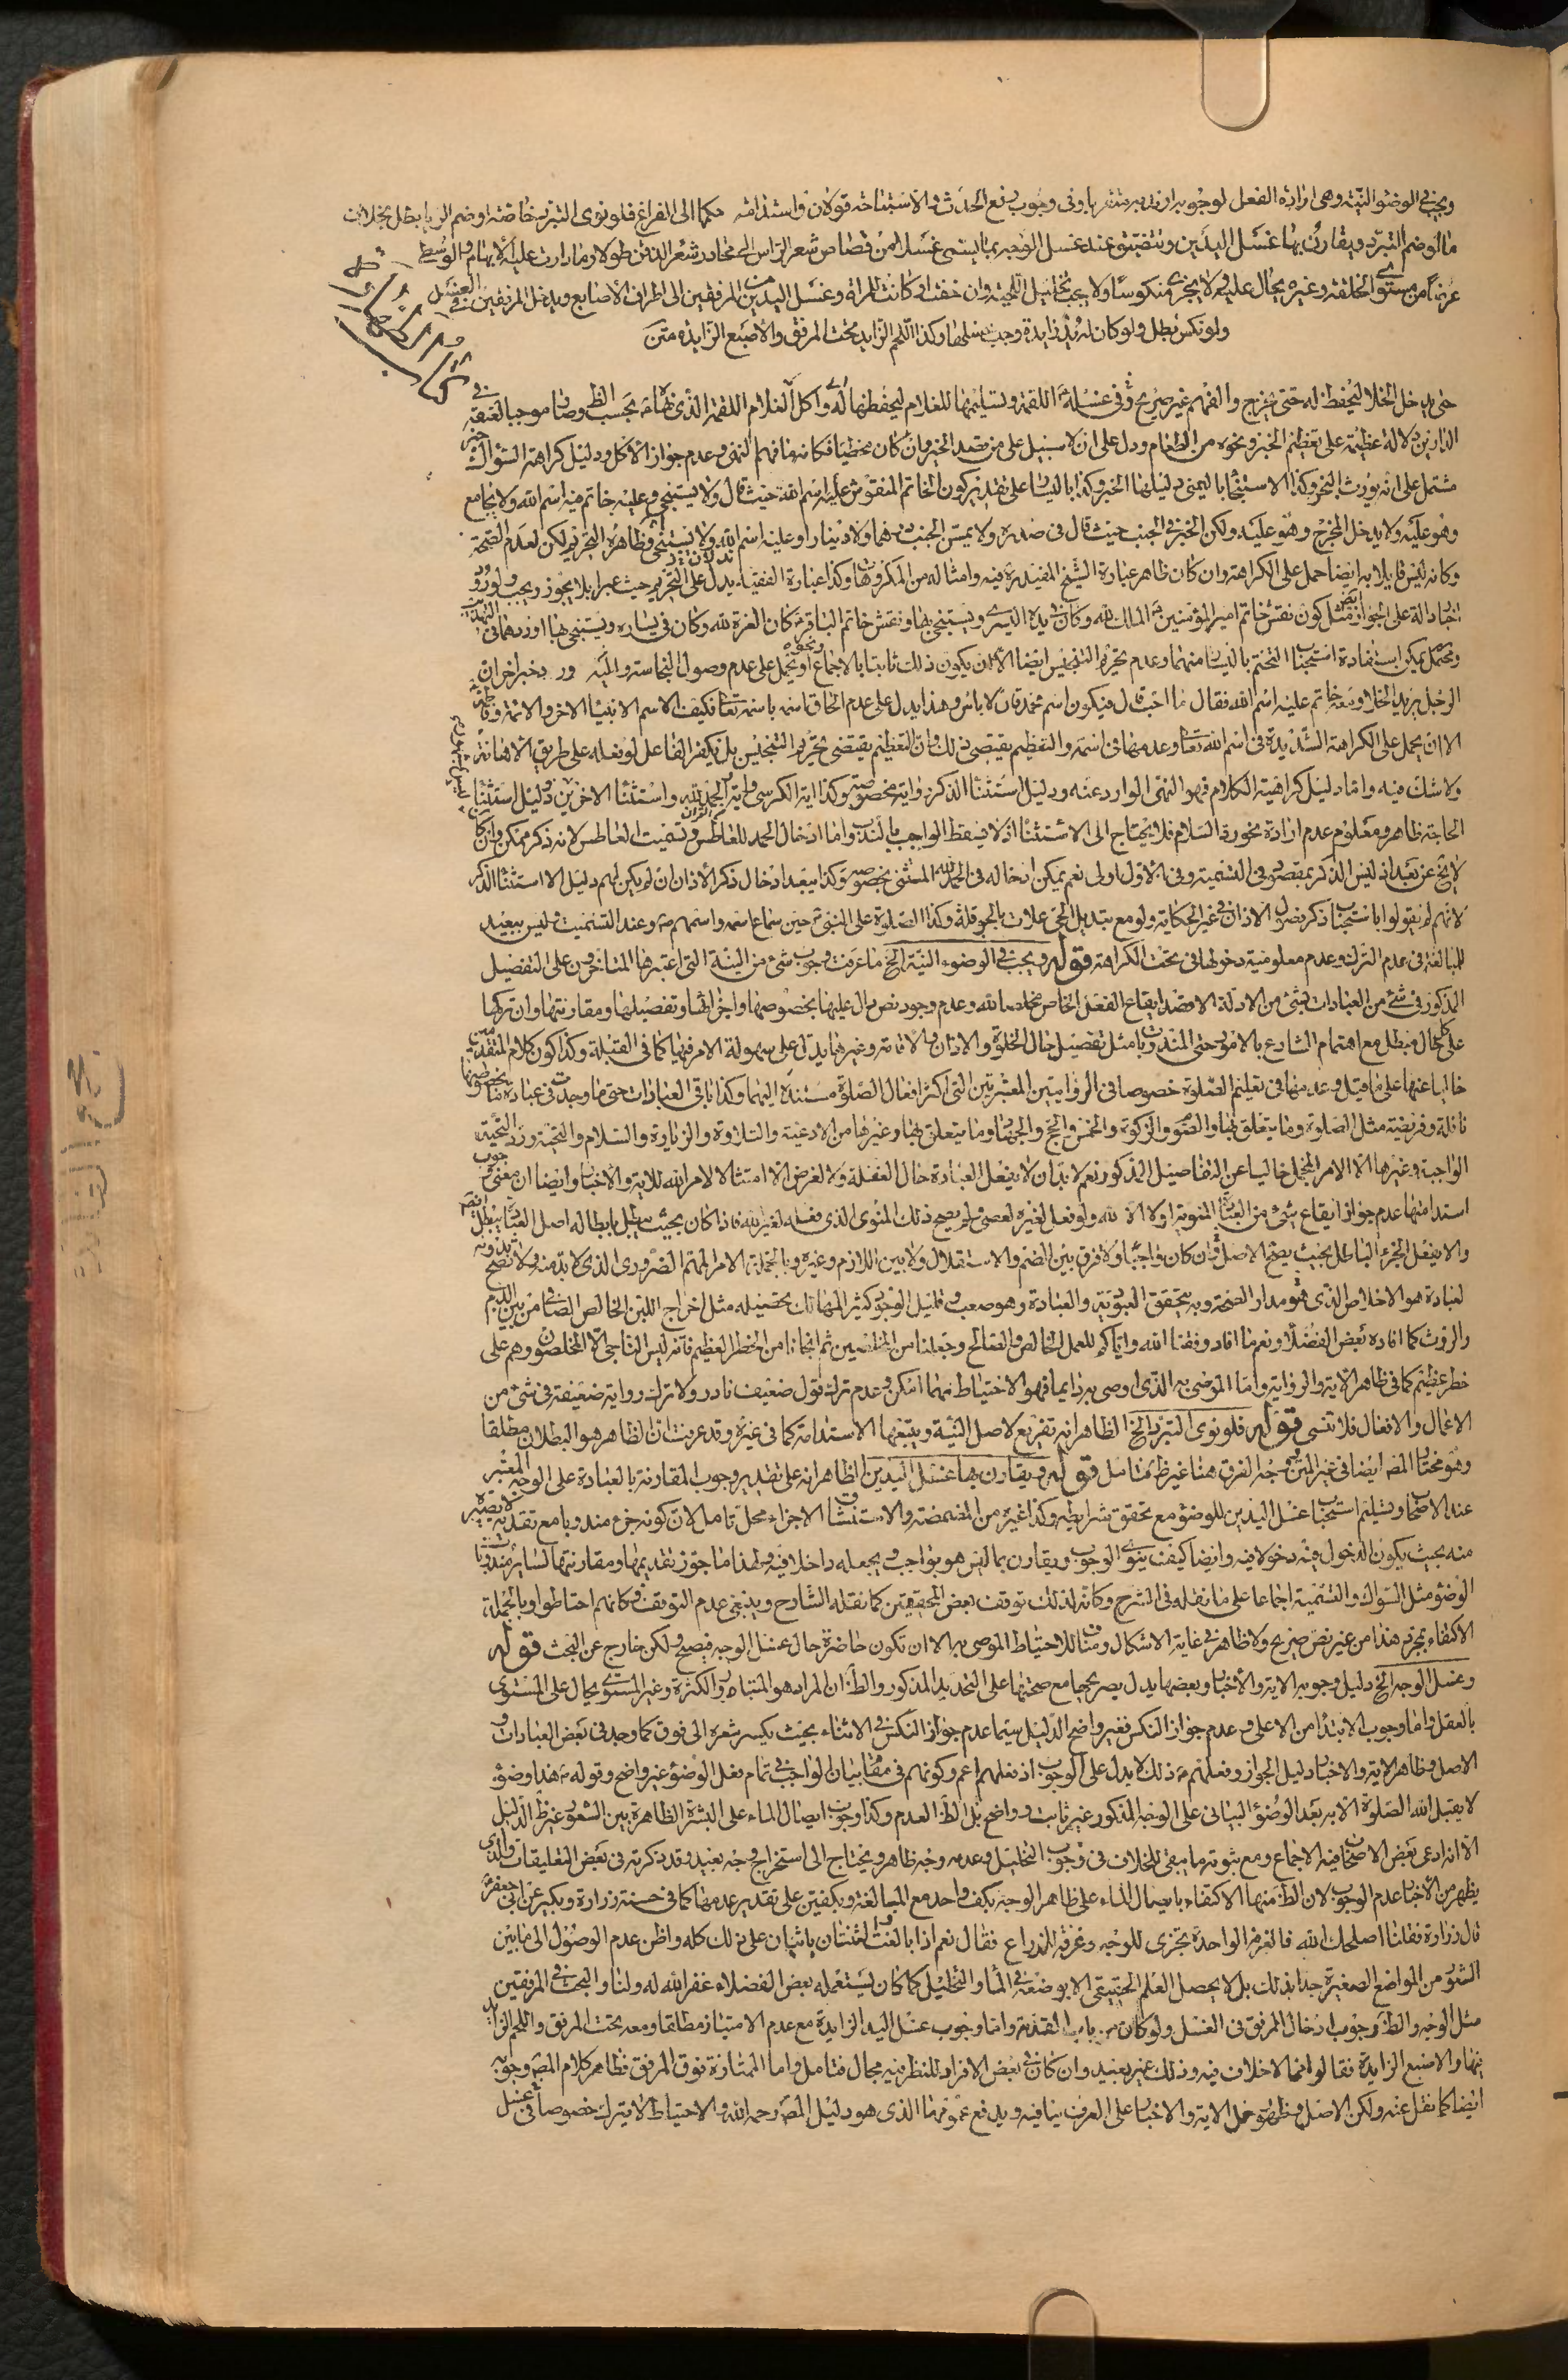 ويجب في الوضوء النية وهي ارادة الفعل لوجوبه او ندبه متقربا وفي وجوب رفع الحدث او الاستباحة قولان واستدامته حكما الى الفراغ فلو نوى التبرد خاصة او ضم الريا بطل بخلاف
ما لو ضم التبرد ويقارن بها غسل اليدين ويتضيق عند غسل الوجه بما يسمى غسلا من قصاص شعر الراس الى محادر شعر الذقن طولا وما دارت عليه الابهام والوسطى
عرضا من مستوى الخلقة وغيره يحال عليه ولا يجزى منكوسا ولا يجب تخليل اللحية وان خفت او كانت للمراة وغسل اليدين من المرفقين الى اطراف الاصابع ويدخل المرفقين في الغسل
ولو نكس بطل ولو كان له يد زايدة وجب غسلها وكذا اللحم الزايد تحت المرفق والاصبع الزايدة متن
كتاب الطهارة
حتى يدخل الخلا ليحفظ له حتى يخرج والفهم غير صريح وفي غسله اللقمة وتسليمها للغلام ليحفظها له واكل الغلام اللقمة الذي نهاه بحسب الظ وصار موجبا لعتقه في
الدارين دلالة عظيمة على تعظيم الخبز ونحوه من الطعام ودل على ان لا سبيل على من قصد الخير وان كان مخطيا فكانه ما فهم النهى وعدم جواز الاكل ودليل كراهة السواك خبر
مشتمل على انه يورث البخر وكذا الاستنجاء باليمنى دليلها الخبر وكذا باليسار على تقدير كون الخاتم المنقوش عليه اسم الله حيث قال ولا يستنجى وعليه خاتم فيه اسم الله ولا يجامع
وهو عليه ولا يدخل المخرج وهو عليه ولكن الخبر في الجنب حيث قال في صدره ولا يمس الجنب درهما ولا دينارا وعليه اسم الله ولا يستنجى وظاهره التحريم لكن لعدم الصحة
وكانه ليس قايلا به ايضا حمل على الكراهة وان كان ظاهر عبارة الشيخ المفيد فيه وامثاله من المكروهات وكذا عبارة الفقيه يدل على التحريم حيث عبر بلا يجوز ويجب ولورود
اخبار دالة على الجواز مثل كون نقش خاتم امير المؤمنين الملك لله وكان في يده اليسرى ويستنجى بها ونقش خاتم الباقر كان العزة لله وكان في يساره ويستنجى بها اوردهما في التهذيب
الرجل يريد الخلا وعليه خاتم عليه اسم الله فقال ما احب قال فيكون اسم محمد قال لا باس وهذا يدل على عدم الحاق اسمه باسمه تعالى فكيف الاسم الانبياء الاخر والائمة وفاطمة
الا ان يحمل على الكراهة الشديدة في اسم الله تعالى وعدمها في اسمه والتعظيم يقتضى ذلك وان التعظيم يقتضى تحريم التنجيس بل يكفر الفاعل لو فعله على طريق الاهانة
ولا شك فيه واما دليل كراهية الكلام فهو النهى الوارد عنه ودليل استثناء الذكر رواية مخصوصة وكذا اية الكرسي واية الحمد لله واستثنا الاخرين ودليل استثناء
الحاجة ظاهر ومعلوم عدم ارادة نحو رد السلام فلا يحتاج الى الاستثناء اذ لا يسقط الواجب بالندب واما ادخال الحمد للعاطس وتسميت العاطس لانه ذكر ممكن وان كان
لا يخ عن بعد اذ ليس الذكر بمقصور في التسمية وفي الاول اولى نعم يمكن ادخاله في الحمد لله المستثنى بخصوصه وكذا يبعد ادخال ذكر الاذان ان لم يكن لهم دليل الا استثناء الذكر
لانهم لم يقولوا باستحباب ذكر فصول الاذان في غير الحكاية ولو مع تبديل الحيعلات بالحوقلة وكذا الصلوة على النبي حين سماع اسمه واسمهم وعند التسميت وليس ببعيد
للمبالغة في عدم الترك وعدم معلومية دخولها في تحت الكراهة قوله ويجب في الوضوء النية الخ ما عرفت وجوب شئ من النية التي اعتبرها المتاخرون على التفصيل
المذكور في شئ من العبادات بشئ من الادلة الا قصد ايقاع الفعل الخاص مخلصا لله وعدم وجود نص دال عليها بخصوصها واجزائها وتفصيلها ومقارنتها وان تركها
على كل حال مبطل مع اهتمام الشارع بالامور حتى المندوبات مثل تفصيل حال الخلوة والاذان والاقامة وغيرهما يدل على سهولة الامر فيها كما في القبلة وكذا كون كلام المتقدمين
خاليا عنها على ما قيل وعدمها في تعليم الصلوة خصوصا في الروايتين المعتبرتين التي اكثر افعال الصلوة مستندة اليهما وكذا باقي العبادات حتى ما وجدت في عبادة ما بخصوصها
نافلة وفريضة مثل الصلوة وما يتعلق بها والصوم والزكوة والخمس والحج والجهاد وما يتعلق بها وغيرها من الادعية والتلاوة والزيارة والسلام والتحية ورد التحية
الواجبة وغيرها الا الامر المجمل خاليا عن التفاصيل المذكور نعم لا بد ان لا يفعل العبادة حال الغفلة ولا لغرض الا امتثالا لامر الله للاية والاخبار وايضا ان معنى وجوب
استدامتها عدم جواز ايقاع شئ من العبادة المنوية اولا الا لله ولو فعل لغيره لعصى ولم يصح ذلك المنوى الذي فعله لغير الله فاذا كان بحيث يبطل بابطاله اصل العبادة يبطل
والا يفعل الجزء الباطل بحيث يصح الاصل فان كان واجبا ولا فرق بين الضم والاستقلال ولا بين اللازم وغيره وبالجملة الامر المهم الضروري الذي لا بد منه ولا تصح بدونه
لعبادة هو الاخلاص الذي هو مدار الصحة وبه يتحقق العبودية والعبادة وهو صعب وقليل الوجود كثير المهالك تحصيله مثل اخراج اللبن الخالص الصافي من بين الدم
والروث كما افاده بعض الفضلاء ونعم ما افاد وفقنا الله واياكم للعمل الخالص والصالح وجعلنا من المخلصين ثم انجانا من الخطر العظيم فانه ليس الناجى الا المخلصون وهم على
خطر عظيم كما في ظاهر الاية والرواية واما الموصى به الذي اوصى به دايما فهو الاحتياط مهما امكن وعدم ترك قول ضعيف نادر ولا ترك رواية ضعيفة في شئ من
الاعمال والافعال فلا تنسى قوله فلو نوى التبرد الخ الظاهر انه تفريع لاصل النية ويتبعها الاستدامة كما في غيره وقد عرفت ان الظاهر هو البطلان مطلقا
وهو مختار المصـ ايضا في غير المتن وجه الفرق هنا غير ظ فتامل قوله ويقارن بها غسل اليدين الظاهر انه على تقدير وجوب المقارنة بالعبادة على الوجه المعتبر
عند الاصحاب وتسليم استحباب غسل اليدين للوضوء مع تحقق شرايطه وكذا غيره من المضمضة والاستنشاق الاجزاء محل تامل لان كونه جزء مندوبا مع تقديمه لا يصيره
منه بحيث يكون الدخول فيه دخولا فيه وايضا كيف ينوى الوجوب ويقارن بما ليس هو بواجب ويجعله داخلا فيه ولهذا ما جوز تقديمها ومقارنتها لساير مندوبات
الوضوء مثل السواك والتسمية اجماعا على ما نقله في الشرح وكانه لذلك توقف بعض المحققين كما نقله الشارح وينبغي عدم التوقف فكانهم احتاطوا وبالجملة
الاكتفاء بمجرد هذا من غير نص صريح ولا ظاهر في غاية الاشكال ومناف للاحتياط الموصى به الا ان تكون حاضرة حال غسل الوجه فيصح ولكن خارج عن البحث قوله
وغسل الوجه الخ دليل وجوبه الاية والاخبار وبعضها يدل بصريحها مع صحتها على التحديد المذكور والظ ان المراد هو المتبادر والكثرة وغير المستوى يحال على المستوى
بالعقل واما وجوب الابتدا من الاعلى وعدم جواز النكس فغير واضح الدليل سيما عدم جواز النكس في الاثناء بحيث يكسر شعره الى فوق كما وجد في بعض العبادات و
الاصل وظاهر الاية والاخبار دليل الجواز وفعلهم ذلك لا يدل على الوجوب اذ فعلهم اعم وكونهم في مقام بيان الواجب في تمام فعل الوضوء غير واضح وقوله هذا وضوء
لا يقبل الله الصلوة الا به بعد الوضوء البياني على الوجه المذكور غير ثابت وواضح بل الظ العدم وكذا وجوب ايصال الماء على البشرة الظاهرة بين الشعور غير ظ الدليل
الا انه ادعى بعض الاصحاب فيه الاجماع ومع ثبوته ما يبقى للخلاف في وجوب التخليل وعدمه وجه ظاهر ويحتاج الى استخراج وجه بعيد وقد ذكرته في بعض التعليقات والذي
يظهر من الاخبار عدم الوجوب لان الظ منها الاكتفاء بايصال الماء على ظاهر الوجه بكف واحد مع المبالغة وبكفين على تقدير عدمها كما في حسنة زرارة وبكير عن ابي جعفر
قال زرارة فقلنا اصلحك الله فالغرفة الواحدة تجزى للوجه وغرفة للذراع فقال نعم اذا بالغت فيها والثنتان ياتيان على ذلك كله واظن عدم الوصول الى ما بين
الشعور من المواضع الصغيرة جدا بذلك بل لا يحصل العلم الحقيقي الا بوضعه في الماء والتخليل كما كان يستعمله بعض الفضلاء غفر الله له ولنا والبحث في المرفقين
مثل الوجه والظ وجوب ادخال المرفق في الغسل ولو كان من باب المقدمة واما وجوب غسل اليد الزايدة مع عدم الامتياز مطلقا ومعه تحت المرفق واللحم الزايد
فيها والاصبع الزايدة فقالوا انما لا خلاف فيه وذلك غير بعيد وان كان في بعض الافراد للنظر فيه مجال فتامل واما الممتازة فوق المرفق فظاهر كلام المصـ وجوبه
ايضا كما نقل عنه ولكن الاصل وظهور حمل الاية والاخبار على العرف ينافيه ويدفع عمومها الذي هو دليل المصـ رحمه الله والاحتياط لا يترك خصوصا في غسل